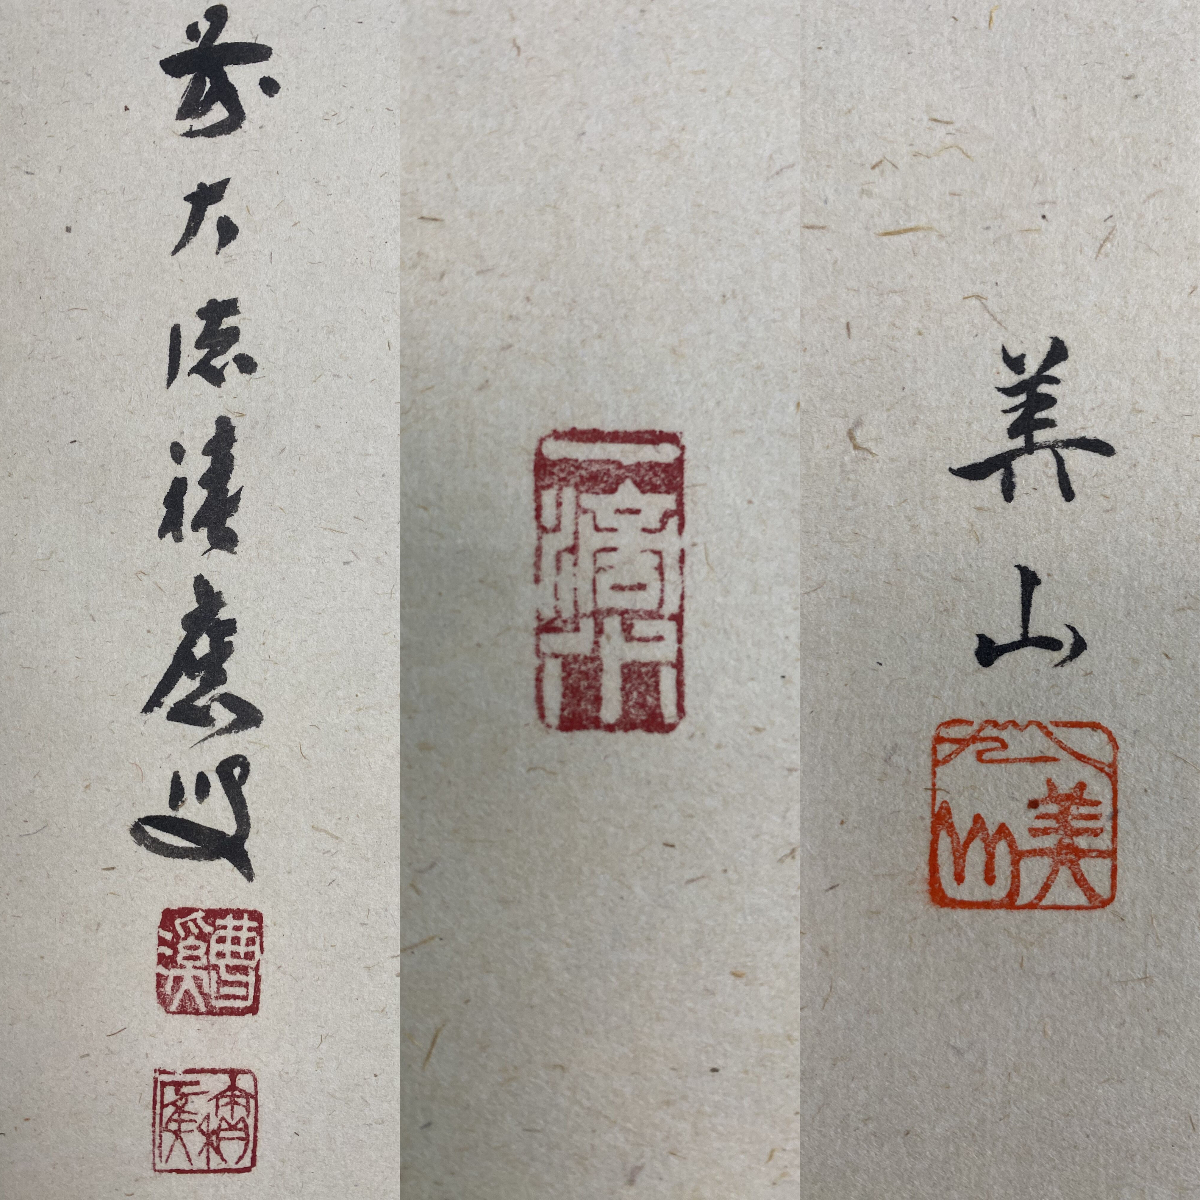 前大徳積應叟
曹溪
一滴水
美山
美山